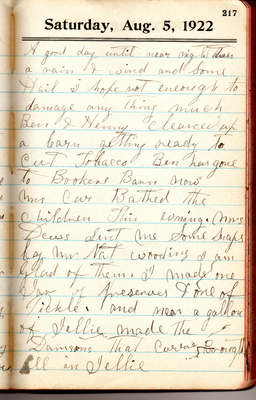 217
Saturday, Aug. 5, 1922
A good day until near night then
a rain & wind and Some
Hail I hope not enough to
damage any thing much
Ben & Henny cleaned up
a barn getting ready to
Cut Tobacco Ben has gone
to Bookers Barn now
Mrs Cur Bathed the
children This evning. Mrs
Dews Sent me Some snaps
by Mr Nat Wooding I am
glad of them. I made one
Jar of Preserves & one of
Pickle. and near a gallon
of Jellie made the
Damsons that
all in Jellie